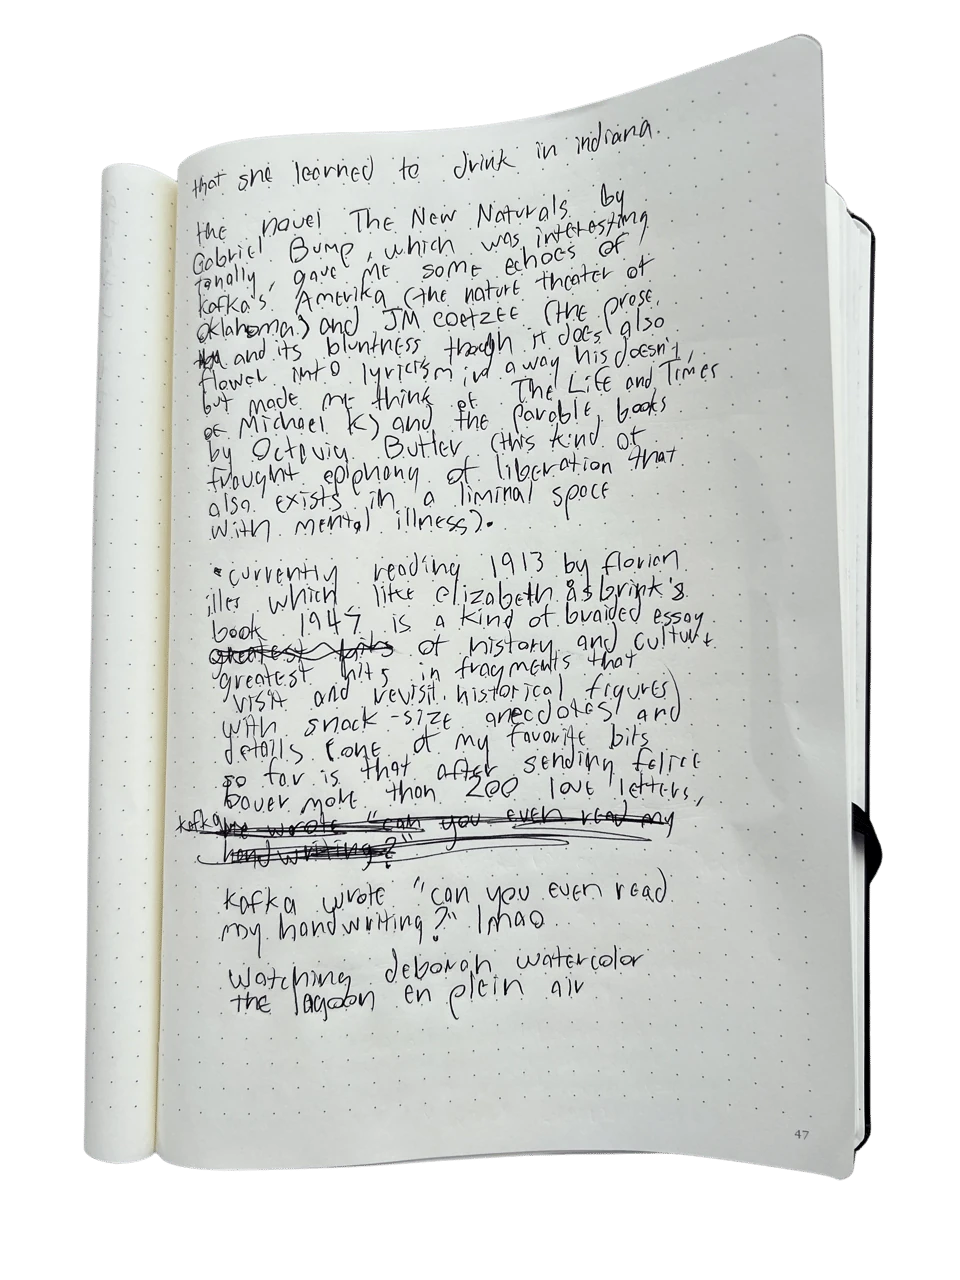 that she learned to drink in indiana.
the novel The New Naturals by
Gabriel Bump, which was interesting
tonally, gave me some echoes of
Kafka's Amerika (the nature theater of
Oklahoma) and JM Coetzee (the prose,
and its bluntness though it does also
flower into lyricism in a way his doesn't,
but made me think of The Life and Times
of Michael K) and the parable books
by Octavia Butler (this kind of
fraught epiphany of liberation that
also exists in a liminal space
with mental illness).
•currently reading 1913 by florian
illes which like elizabeth åsbrink's
book 1947 is a kind of braided essay
greatest hits of history and culture
greatest hits in fragments that
visit and revisit historical figures)
with snack-size anecdotes and
details (one of my favorite bits
so far is that after sending felice
bauer more than 200 love letters,
kafka he wrote "can you even read my
handwriting?"
kafka wrote "can you even read
my handwriting?" lmao
watching deborah watercolor
the lagoon en plein air
47